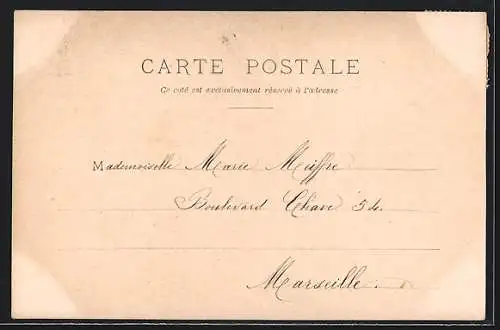 CARTE POSTALE
Ce côté est exclusivement réservé à l'adresse
Mademoiselle Marie Meiffre
Boulevard Chave 54.
Marseille.